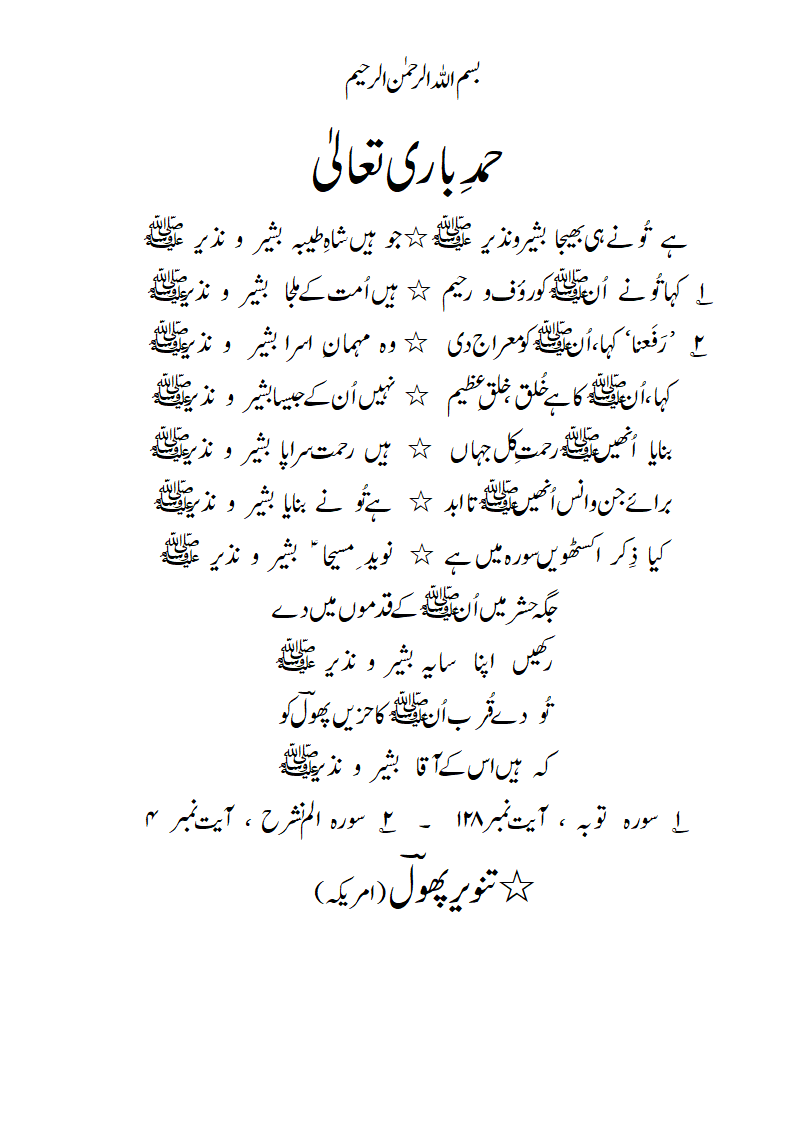 بسم اللہ الرحمٰن الرحیم
حمدِ باری تعالیٰ
ہے تُو نے ہی بھیجا بشیر و نذیر ﷺ ☆ جو ہیں شاہِ طیبہ بشیر و نذیر ﷺ
۱؎ کہا تُو نے اُن ﷺ کو رؤف و رحیم ☆ ہیں اُمت کے ملجا بشیر و نذیر ﷺ
۲؎ ’رَفَعنا‘ کہا، اُن ﷺ کو معراج دی ☆ وہ مہمانِ اسرا بشیر و نذیر ﷺ
کہا، اُن ﷺ کا ہے خُلق ، خلقِ عظیم ☆ نہیں اُن کے جیسا بشیر و نذیر ﷺ
بنایا اُنھیں ﷺ رحمتِ کل جہاں ☆ ہیں رحمت سراپا بشیر و نذیر ﷺ
برائے جن و انس اُنھیں ﷺ تا ابد ☆ ہے تُو نے بنایا بشیر و نذیر ﷺ
کیا ذِکر اکسٹھویں سورہ میں ہے ☆ نویدِ مسیحا ؑ بشیر و نذیر ﷺ
جگہ حشر میں اُن ﷺ کے قدموں میں دے
رکھیں اپنا سایہ بشیر و نذیر ﷺ
تُو دے قُرب اُن ﷺ کا حزیں پھولؔ کو
کہ ہیں اس کے آقا بشیر و نذیر ﷺ
۱؎ سورہ توبہ ، آیت نمبر ۱۲۸ ۔ ۲؎ سورہ الم نشرح ، آیت نمبر ۴
☆ تنویر پھولؔ (امریکہ)